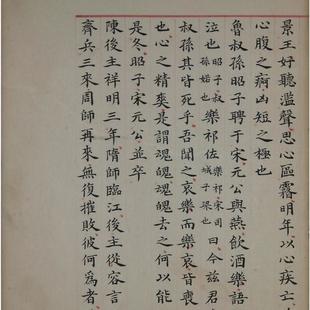 景王好聽濫聲思心區霿明年以心疾亡
心腹之疴凶短之極也
魯叔孫昭子聘于宋元公與燕飲酒樂語
泣也昭子叔孫婼也樂祁佐樂祁宋司城子梁也曰今茲君
叔孫其皆死乎吾聞之哀樂而樂哀皆喪
也心之精爽是謂魂魄魂魄去之何以能
是冬昭子宋元公並卒
陳後主祥明三年隋師臨江後主從容言
齊兵三來周師再來無復摧敗彼何為者